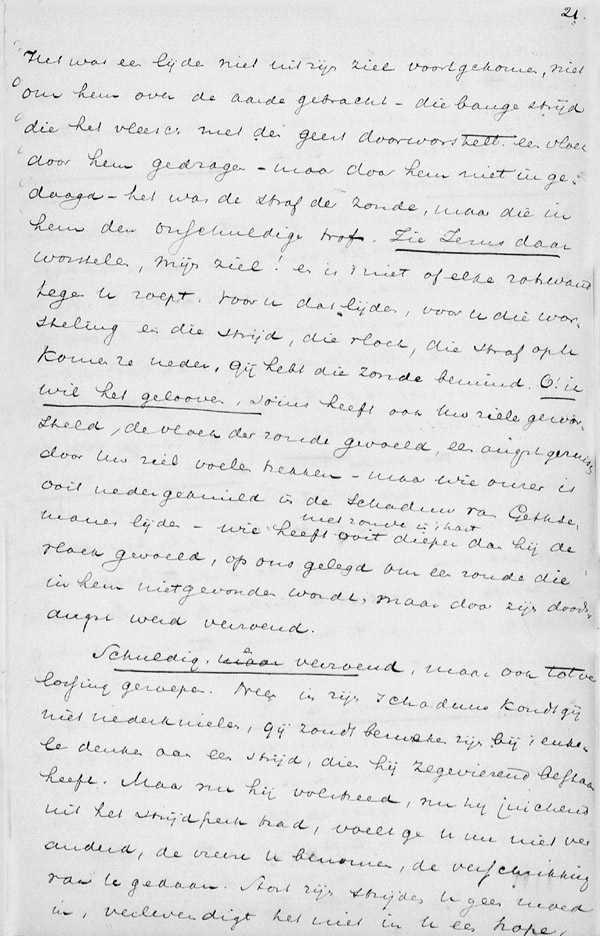 21.
Het was een lijden niet uit zijn ziel voortgekomen, niet
om hem over de aarde gebracht - die bange strijd
die het vleesch met den geest doorworstelt. een vloek
door hem gedragen - maar door hem niet inge-
daagd - het was de straf der zonde, maar die in
hem den onschuldige trof. Zie Jezus daar
worstelen, mijn ziel! er is niet of elke rotswand
tegen u roept. Voor u dat lijden, voor u die wor-
steling en die strijd, die vloek, die straf op u
komen ze neder, gij hebt die zonde bemind. O! ik
wil het gelooven, soms heeft ook Uw ziele gewor-
steld, de vloek der zonde gevoeld, een angst
door Uw ziel voelen trekken - maar wie onzer is
ooit nedergeknield in de schaduw van Gethse-
manes lijden - wie heeft met zonde in 't hart ooit dieper dan hij de
vloek gevoeld, op ons gelegd om een zonde die
in hem niet gevonden wordt, maar door zijn doods-
angst werd verzoend.
Schuldig, maar verzoend, maar ook tot ver-
lossing geroepen. Neen in zijn schaduw kondt gij
niet nederknielen, gij zoudt bezweken zijn bij 't enke-
le denken aan een strijd, dien hij zegevierend bestaan
heeft. Maar nu hij volstreed, nu hij juichend
uit het strijdperk trad, voelt ge u nu niet ver-
anderd, de vreeze u benomen, de verschrikking
van u gedaan. Stort zijn strijden u geen moed
in, verlevendigt het niet in u een hope,